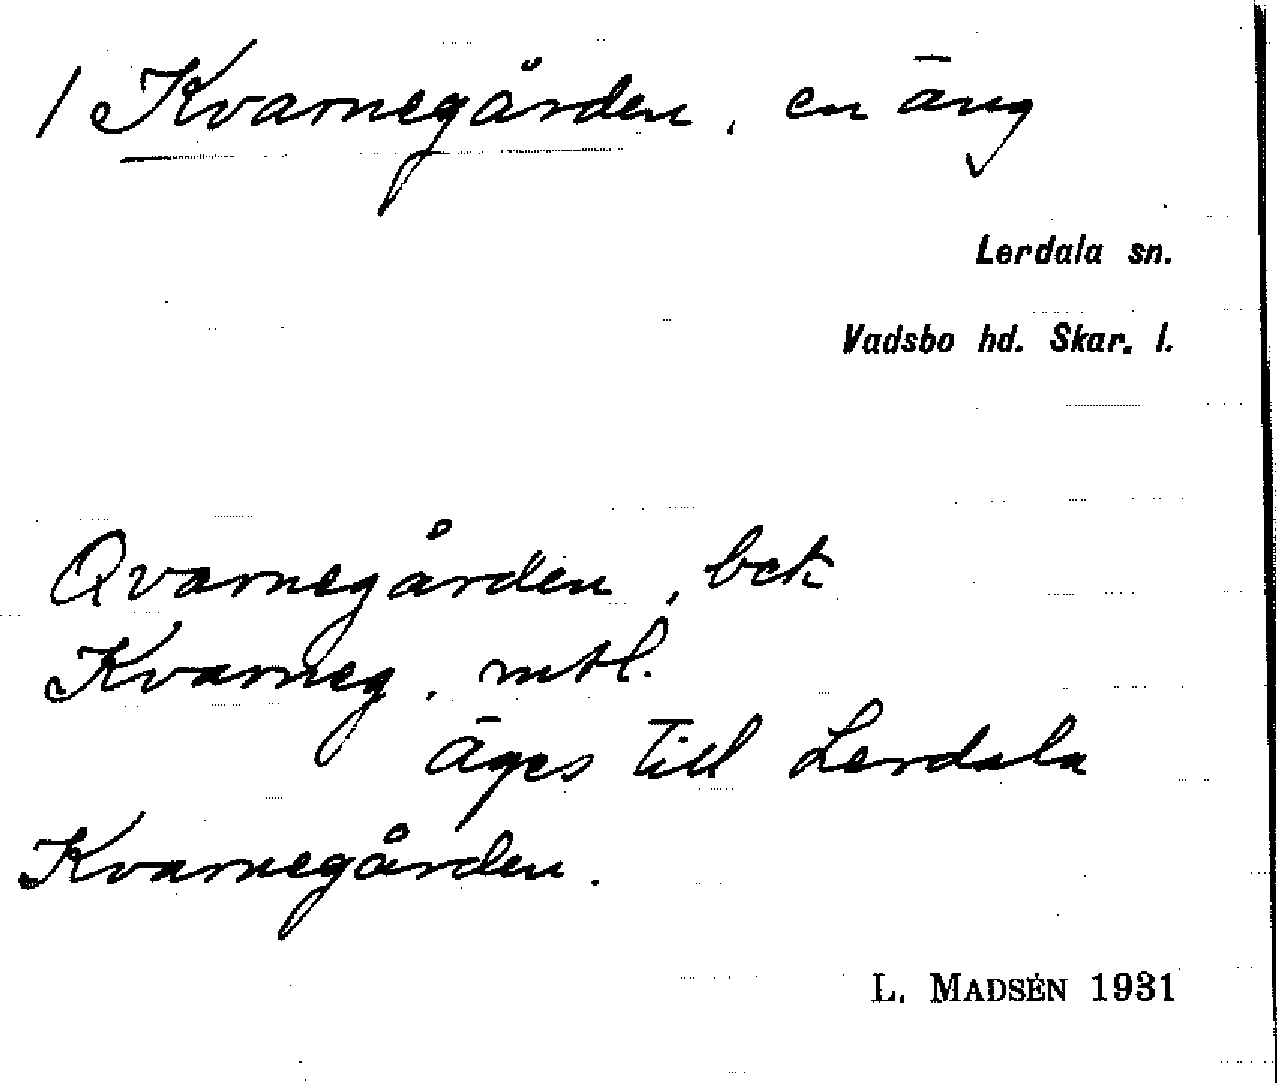 / Kvarnegården, en äng
Lerdala sn.
Vadsbo hd. Skar. l.
Qvarnegården, bek
Kvarneg. mtl.
äges till Lerdala
Kvarnegården.
L. MADSÉN 1931